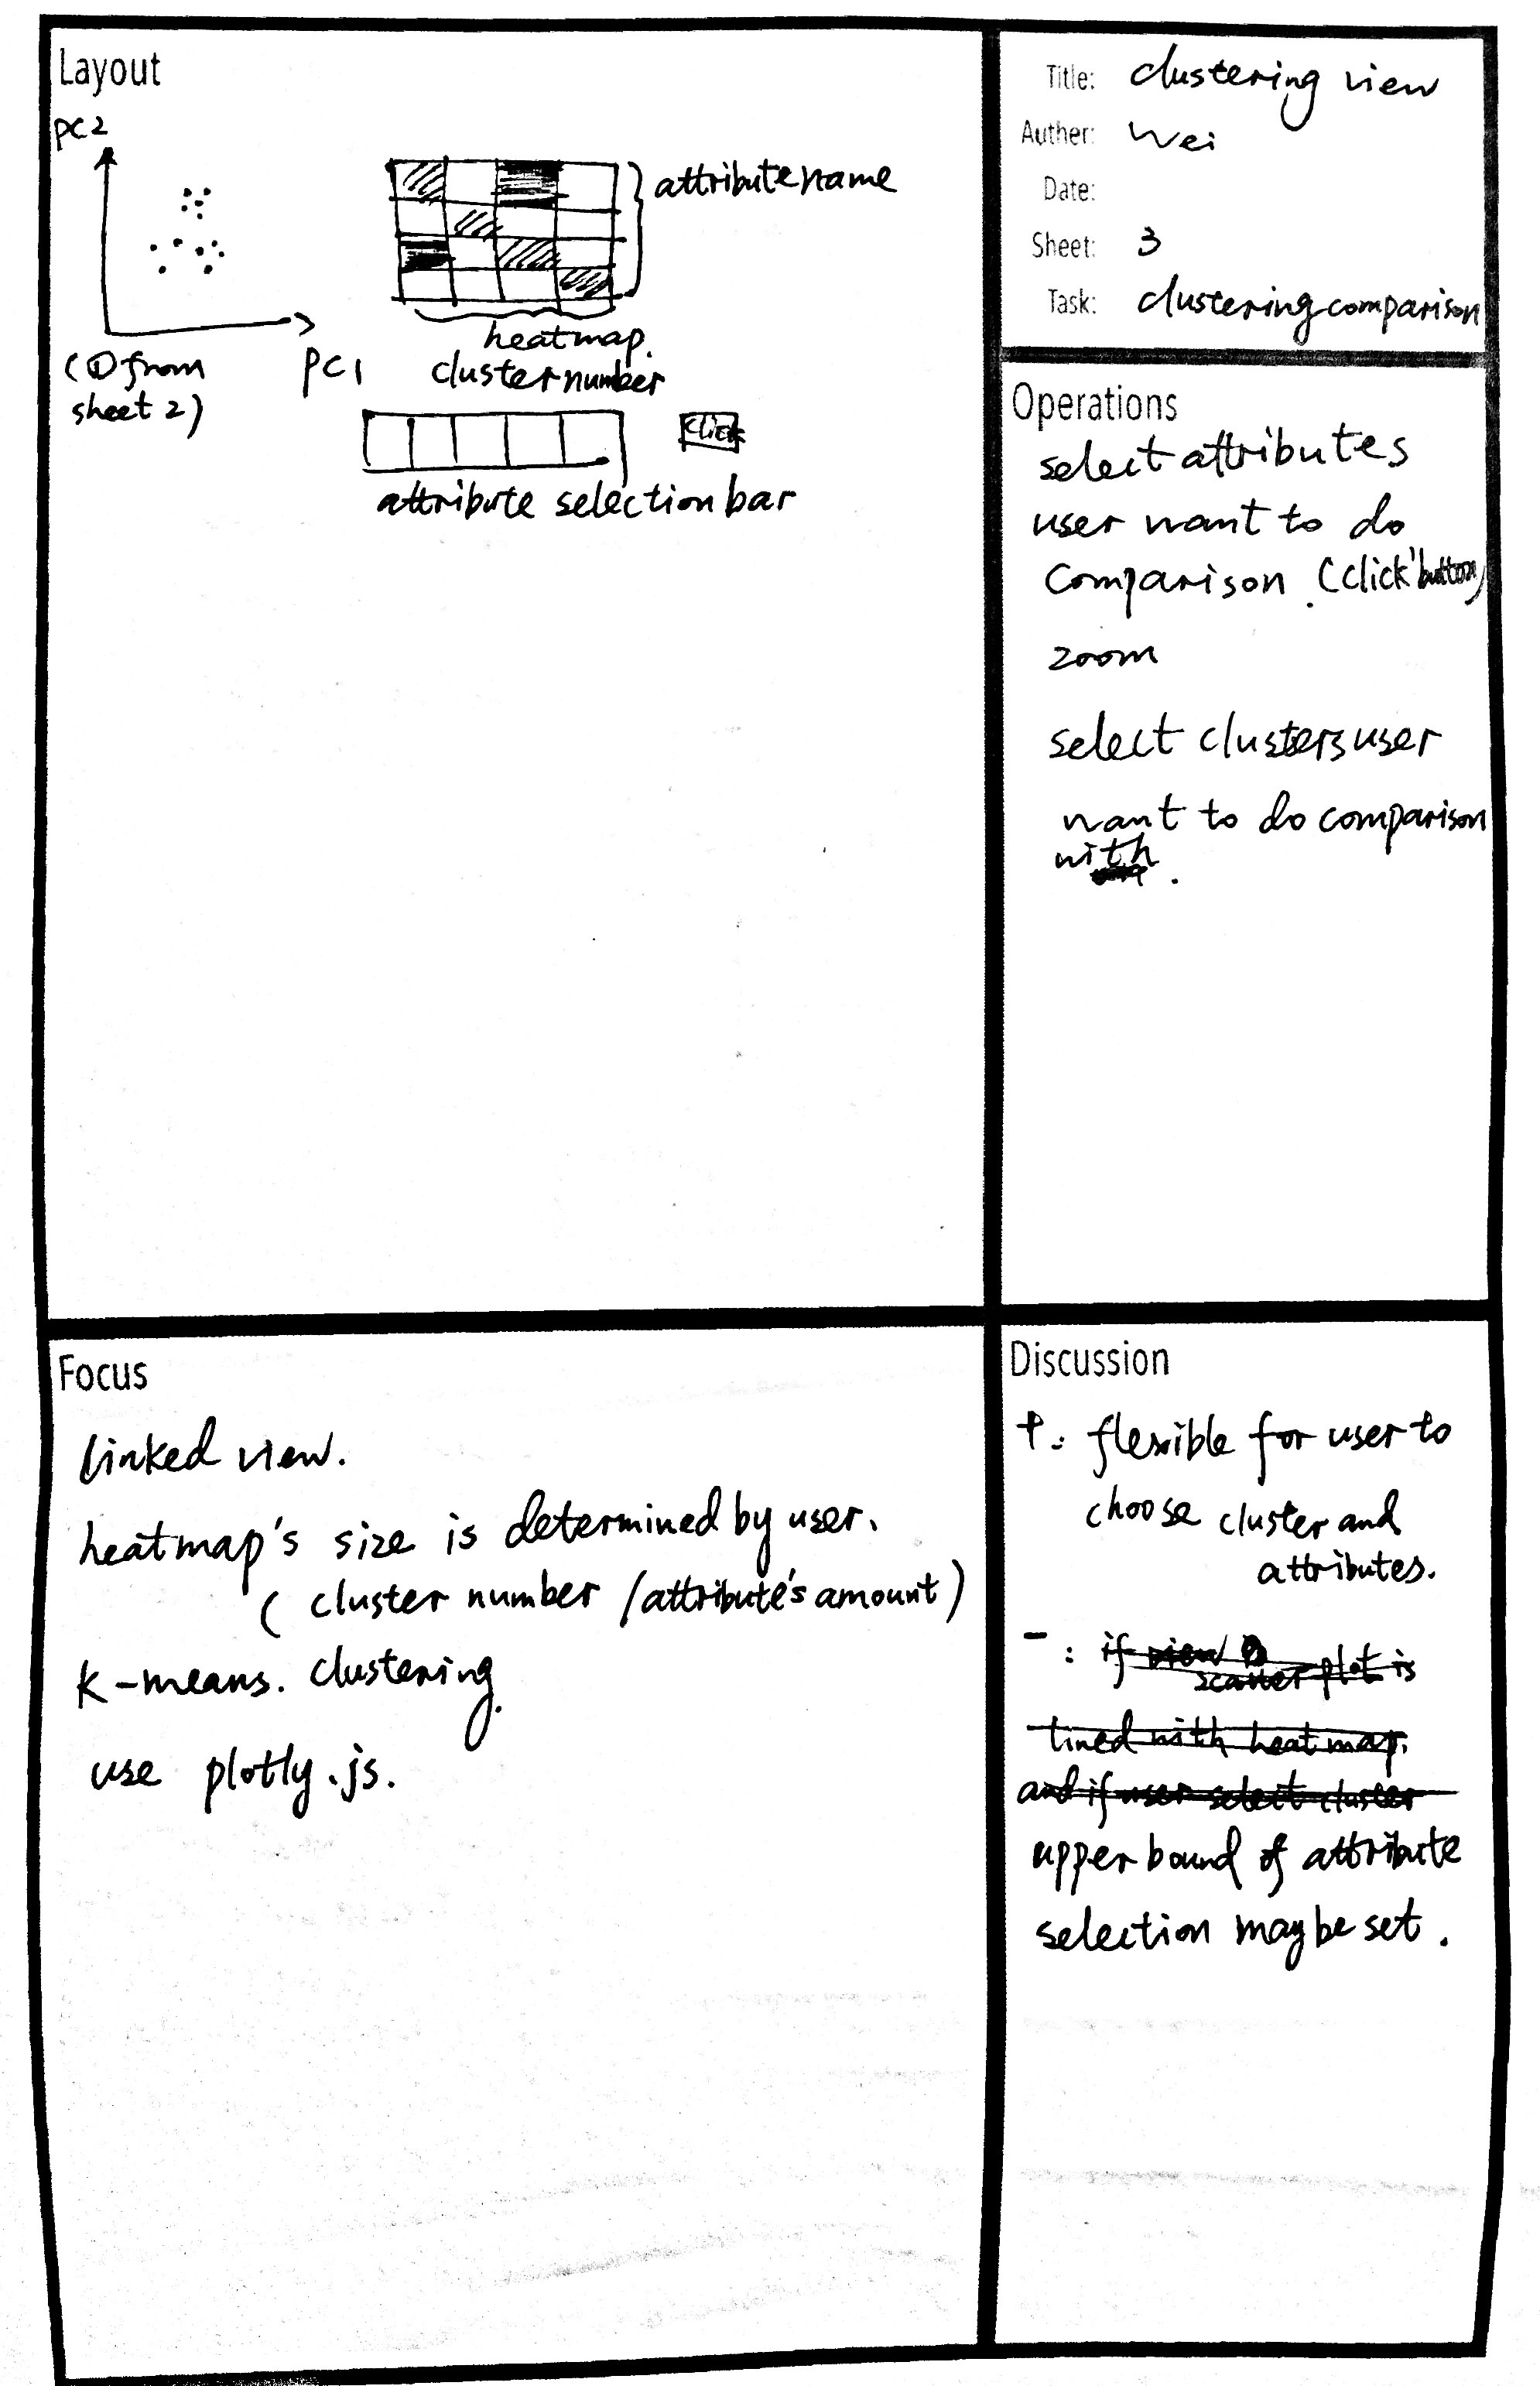 Layout
pc2
attribute name
heatmap.
(① from
sheet 2)
pc1
cluster number
click
attribute selection bar
Title: clustering view
Auther: Wei
Date:
Sheet: 3
Task: clustering comparison
Operations
select attributes
user want to do
comparison. (click 'button)
zoom
select clusters user
want to do comparison
with
.
Focus
linked view.
heatmap's size is determined by user.
( cluster number / attribute's amount)
K-means. clustering.
use plotly.js.
Discussion
+: flexible for user to
choose cluster and
attributes.
-: if view
scatter plot is
lined with heatmap.
and if user select cluster
upper bound of attribute
selection maybe set.